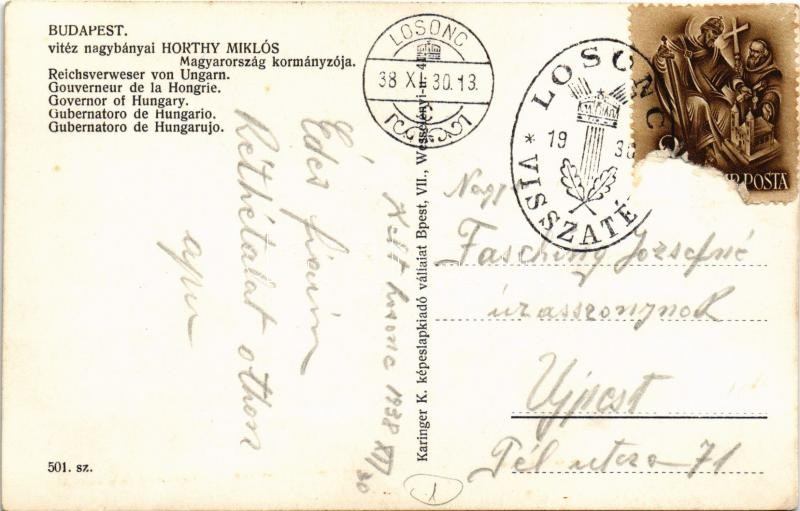 BUDAPEST.
vitéz nagybányai HORTHY MIKLÓS
Magyarország kormányzója.
Reichsverweser von Ungarn.
Gouverneur de la Hongrie.
Governor of Hungary.
Gubernatoro de Hungario.
Gubernatoro de Hungarujo.
LOSONC
38 XI. 30. 13.
LOSONC
19 38
VISSZATÉ
POSTA
Karinger K. képeslapkiadó vállalat Bpest, VII., Wesselényi-u. 41
Édes fiaim
otthon
apu
Kelt Losonc 1938 XI/30
Nagy
Fasching Józsefné
úrasszonynak
Ujpest
Pél utca 71
501. sz.
1